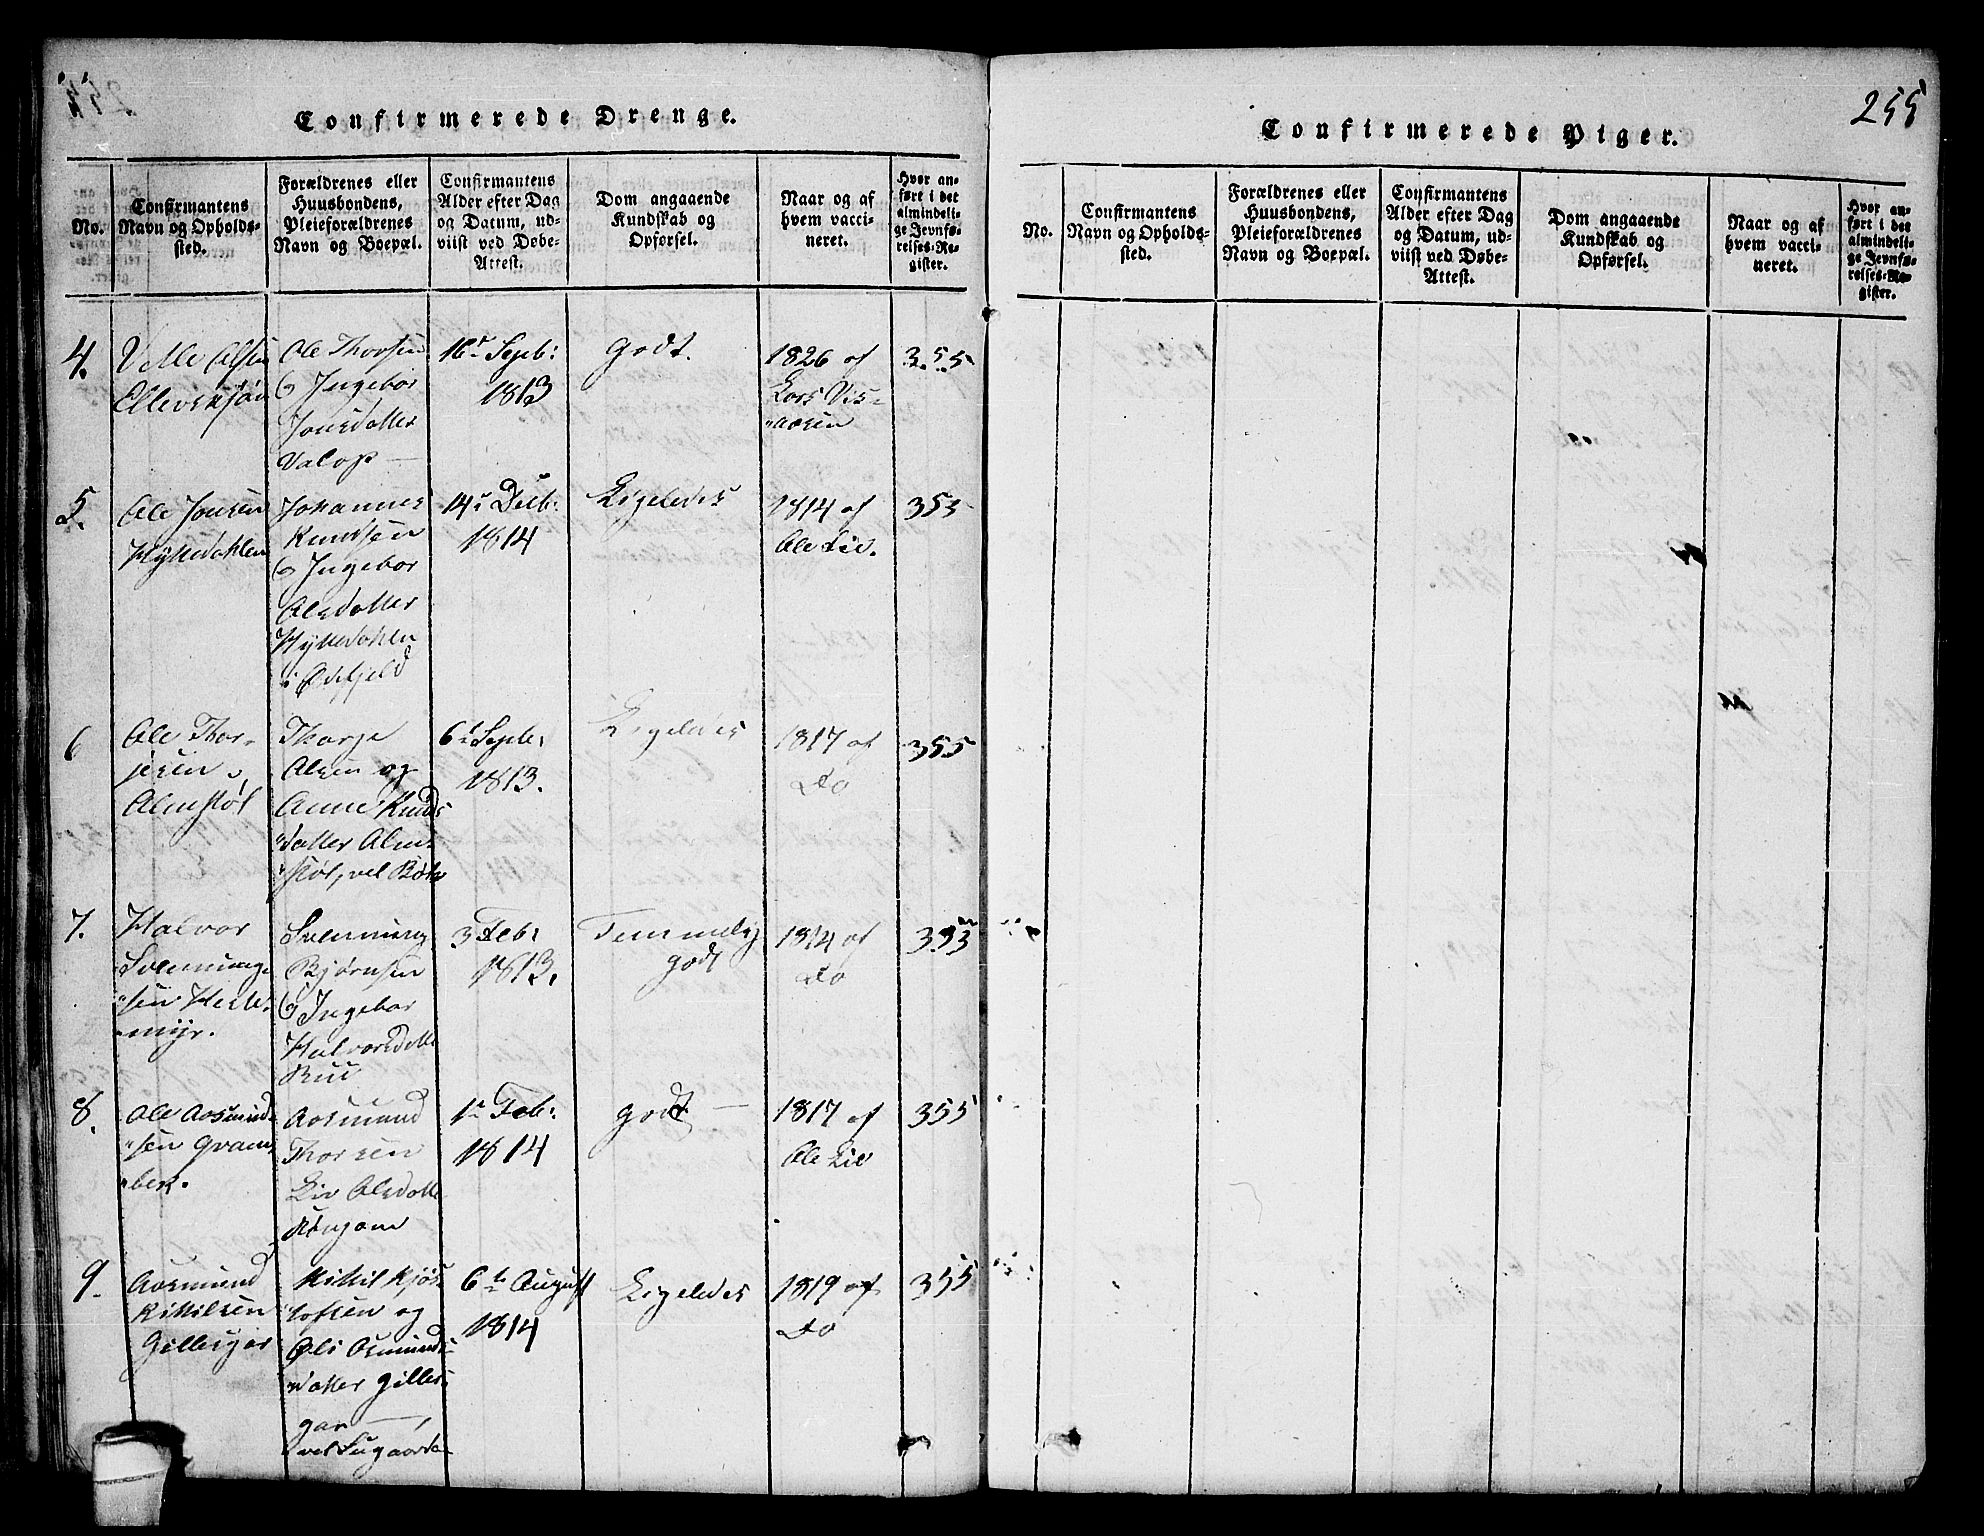 255
Confirmerede Drenge.
No.
Confirmantens
Navn og Opholds-
sted.
Forældrenes eller
Huusbondens,
Pleieforældrenes
Navn og Boepæl.
Confirmantens
Alder efter Dag
og Datum, ud-
viist ved Døbe-
Attest.
Dom angaaende
Kundskab og
Opførsel.
Naar og af
hvem vacci-
neret.
Hvor an-
ført i det
almindeli-
ge Jevnfø-
relses-Re-
gister.
4.
Velle Olsen
Ole Thorsen
og Ingebor
Jonsdatter
Valop
16de Septb:
1813
Godt.
1826 af
Lars Vis-
355
5.
Ole Jonsen
Hyttedahlen
Johannes
Kundsen
og Ingebor
Olsdatter
Hyttedahlen
14de Decb:
1814
Ligeledes
1814 af
Ole Lie.
353
6
Ole Thor-
jesen
Almstøl
Thorje
Olsen og
Anne Knuds
"datter Alm-
"støl, vel Bøke
6te Septb:
1813.
Ligeledes
1817 af
Do
355
7.
Halvor
Svenninge
"sen Heile-
"myr.
Svenning
Bjørnsen
og Ingebor
Halvorsdatte
Ruu
3 Feb:
1813.
Temmelig
godt
1814 af
Do
353
8.
Ole Aasmund-
"sen Qvam-
"bek.
Aasmund
Thorsen
Liv Olsdatte
1te Feb:
1814
godt
1817 af
Ole Lie
355
9.
Aasmund
Kittilsen
Gillesgar
Kittil Kjøs-
tolfsen og
Olo Asmunds-
"datter Gilles-
gar
6te August
1814
Ligeledes
1819 af
Do
355
Confirmerede Piger.
No.
Confirmantens
Navn og Opholds-
sted.
Forældrenes eller
Huusbondens,
Pleieforældrenes
Navn og Boepæl.
Confirmantens
Alder efter Dag
og Datum, ud-
viist ved Døbe-
Attest.
Dom angaaende
Kundskab og
Opførsel.
Naar og af
hvem vacci-
neret.
Hvor an-
ført i det
almindeli-
ge Jevnfø-
relses-Re-
gister.